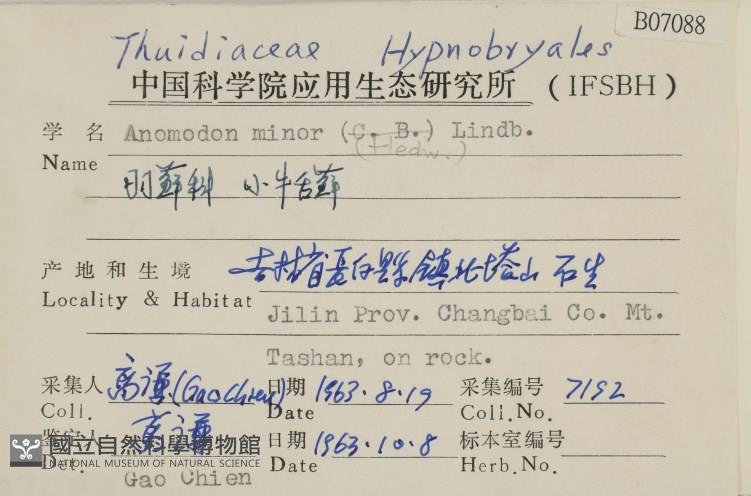 B07088
Thuidiaceae Hypnobryales
中国科学院应用生态研究所 (IFSBH)
学 名 Anomodon minor (C. B.) Lindb.
(Hedw.)
Name
羽蘚科 小牛舌蘚
产地和生境 吉林省長白縣鎮北塔山 石生
Locality & Habitat Jilin Prov. Changbai Co. Mt.
Tashan, on rock.
采集人 高謙 (Gao Chien) 日期 1963.8.19 采集编号 7192
Coll. Date Coll.No.
鉴定人 高謙 日期 1963.10.8 标本室编号
Det. Gao Chien Date Herb.No.
國立自然科學博物館
NATIONAL MUSEUM OF NATURAL SCIENCE